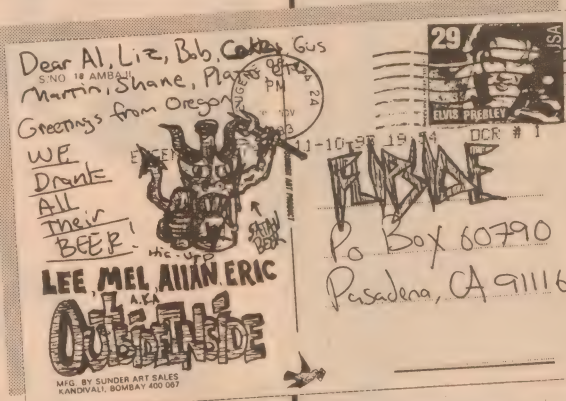 Dear Al, Liz, Bob, Cathy, Gus
S/NO 18 AMBAJI
Martin, Shane,
Greetings from Oregon
WE
Drank
All
Their
BEER!
Hic-up
SATAN
BEER
LEE, MEL, AllAN, ERIC
A.K.A
OUTSIDEINSIDE
MFG. BY SUNDER ART SALES
KANDIVALI, BOMBAY 400 067
PM
29
USA
ELVIS PRESLEY
11-10-93 19 54 OCR # 1
FLIPSIDE
Po Box 60790
Pasadena, CA 91116